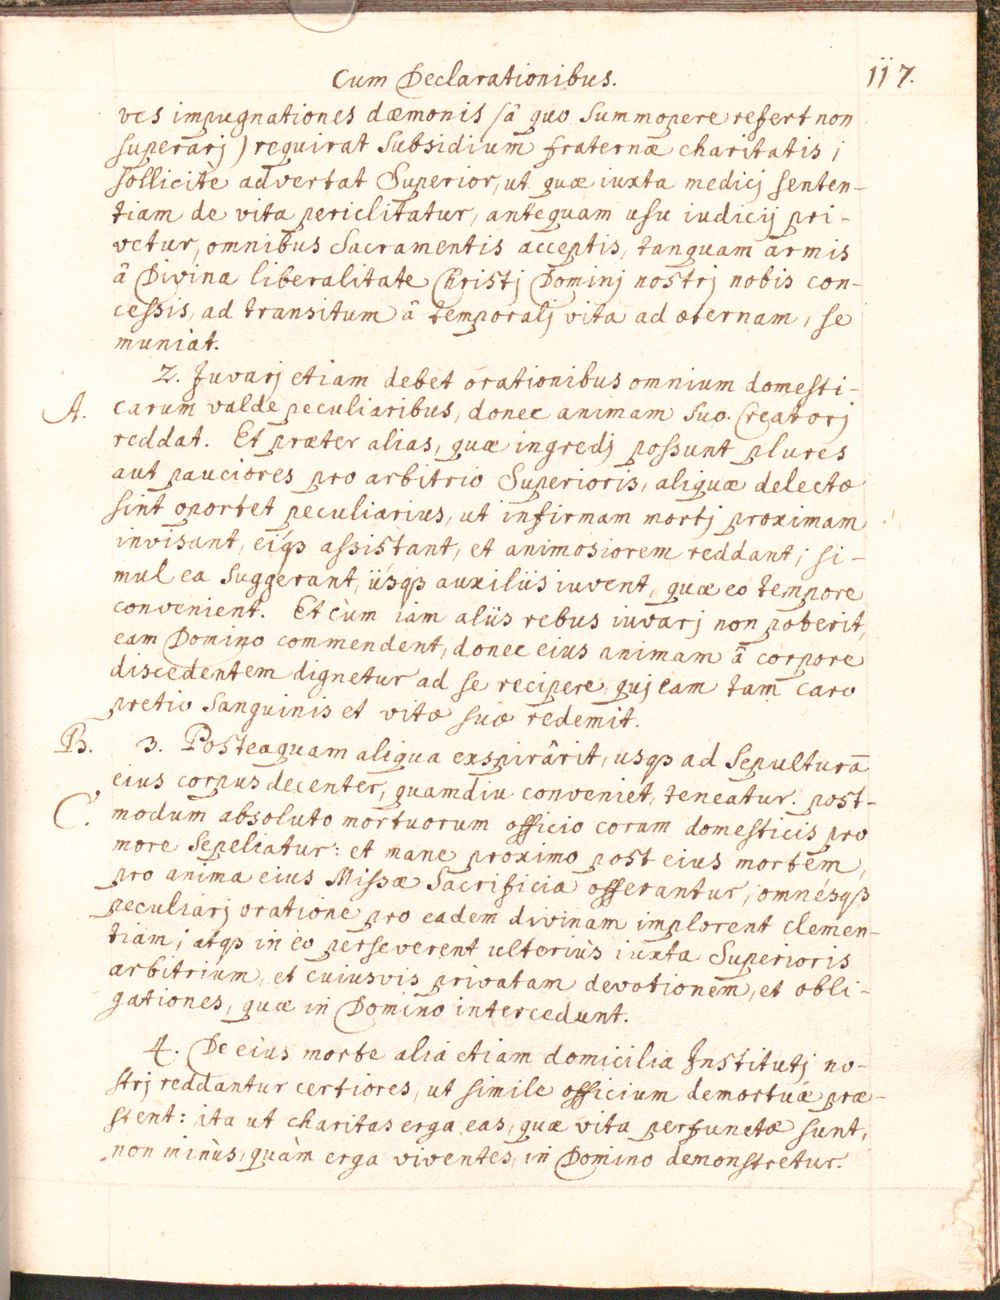 Cum Declarationibus.
117.
ves impugnationes dæmonis (â quo summopere refert non
superarj) requirat subsidium fraternæ charitatis;
sollicitè advertat Superior, ut quæ iuxta medicj senten-
tiam de vita periclitatur, antequam usu iudicij pri-
vetur, omnibus Sacramentis acceptis, tanquam armis
â Divina liberalitate Christj Dominj nostrj nobis con-
cessis, ad transitum â temporalj vita ad æternam, se
muniat.
2. Juvarj etiam debet orationibus omnium domesti-
A.
carum valde peculiaribus, donec animam suo Creatorj
reddat. Et præter alias, quæ ingredj possunt plures
aut pauciores pro arbitrio Superioris, aliquæ delectæ
sint oportet peculiarius, ut infirmam mortj proximam
invisant, eiqꝫ assistant, et animosiorem reddant; si-
mul ea suggerant, iisqꝫ auxiliis iuvent, quæ eo tempore
convenient. Et cùm iam aliis rebus iuvarj non poterit,
eam Domino commendent, donec eius animam â corpore
discedentem dignetur ad se recipere, quj eam tam caro
pretio sanguinis et vitæ suæ redemit.
B.
3. Posteaquam aliqua exspirârit, usqꝫ ad sepulturā
eius corpus decenter, quamdiu conveniet, teneatur. post-
C.
modum absoluto mortuorum officio coram domesticis pro
more sepeliatur: et mane proximo post eius mortem,
pro anima eius Missæ Sacrificia offerantur, omnesqꝫ
peculiarj oratione pro eadem divinam implorent clemen-
tiam; atqꝫ in eo perseverent ulteriùs iuxta Superioris
arbitrium, et cuiusvis privatam devotionem, et obli-
gationes, quæ in Domino intercedunt.
4. De eius morte alia etiam domicilia Institutj no-
strj reddantur certiores, ut simile officium demortuæ præ-
stent: ita ut charitas erga eas, quæ vita perfunctæ sunt,
non minùs, quàm erga viventes, in Domino demonstretur.